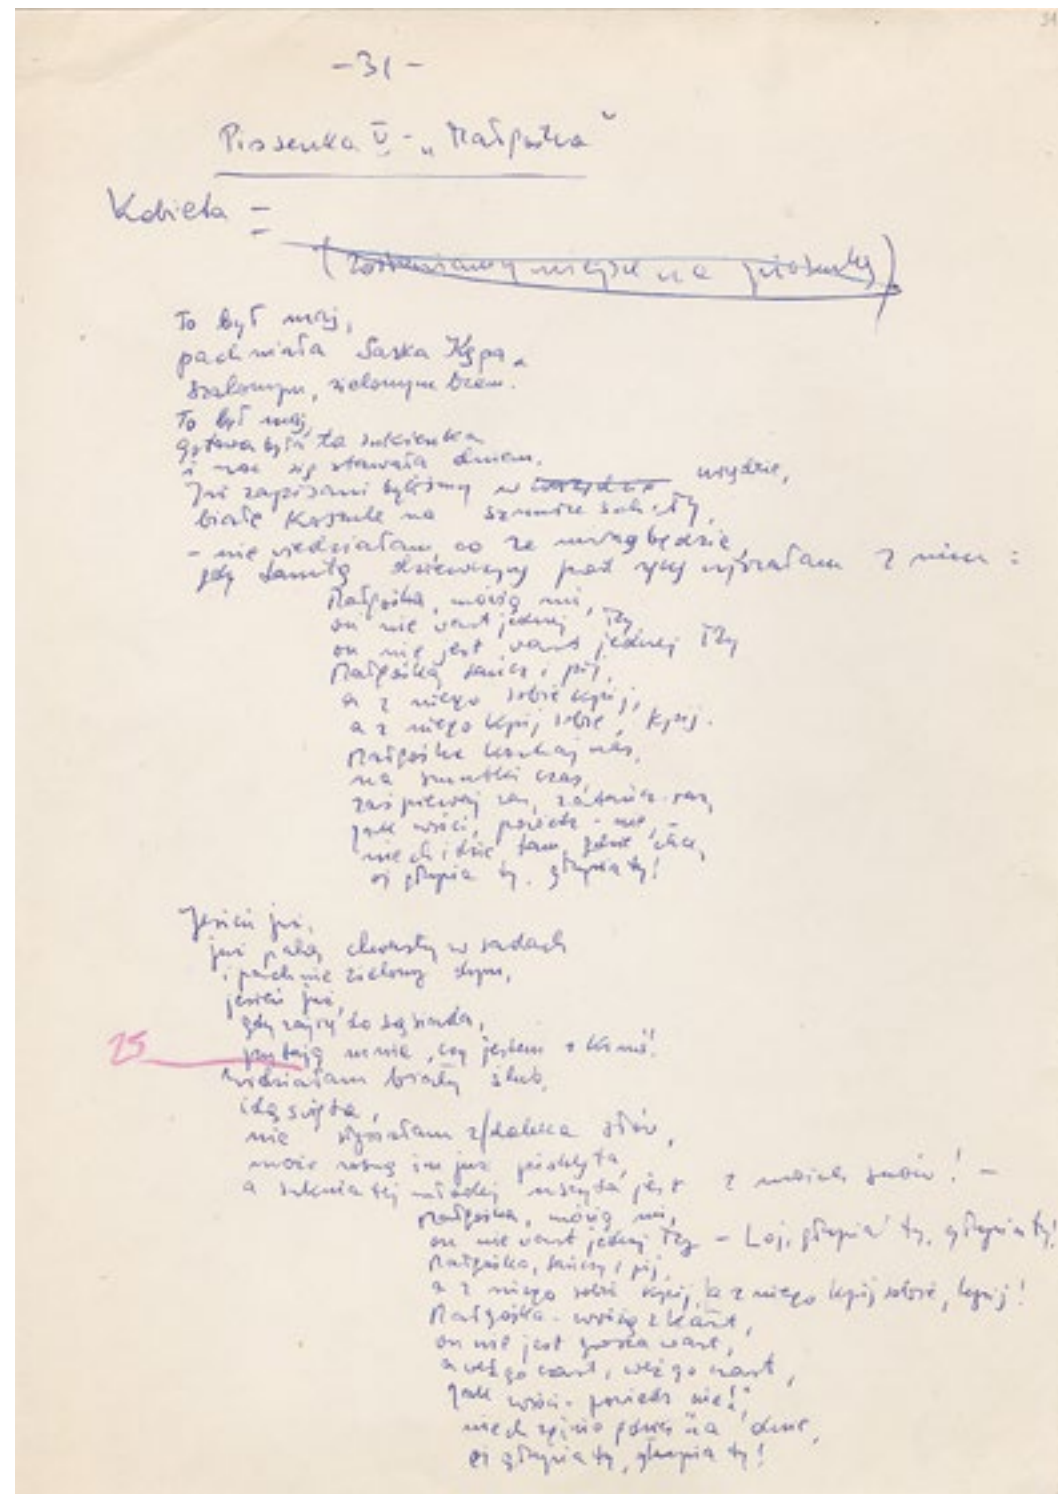 31
- 31 -
Piosenka V - „Małgośka"
Kobieta =
(zostawiamy miejsce na piosenkę)
To był maj,
pachniała Saska Kępa
szalonym, zielonym bzem.
To był maj,
gotowa była ta sukienka
i noc się stawała dniem.
Już zapisani byliśmy w urzędzie urzędzie,
białe koszule na sznurze schły,
- nie wiedziałam, co ze mną będzie,
gdy tamtą dziewczynę pod rękę ujrzałam z nim :
Małgośka, mówią mi,
on nie wart jednej łzy
on nie jest wart jednej łzy
Małgośka, tańcz i pij,
a z niego sobie kpij,
a z niego kpij sobie, kpij.
Małgośka kochaj nas,
na smutki czas,
zaśpiewaj raz, zatańcz raz,
jak wróci, powiedz - nie,
niech idzie tam, gdzie chce,
ej głupia ty, głupia ty!
Jesień już,
już palą chwasty w sadach
i pachnie zielony dym,
jesień już,
gdy zajrzę do sąsiada,
25
pytają mnie, czy jestem z kimś!
Widziałam biały ślub,
idą święta,
nie słyszałam z daleka słów,
może rosną im już pisklęta,
a suknia tej młodej uszyta jest z moich snów! -
Małgośka, mówią mi,
on nie wart jednej łzy - Loj, głupia ty, głupia ty!
Małgośka, tańcz i pij,
a z niego sobie kpij, a z niego kpij sobie, kpij!
Małgośka - wróżą z kart,
on nie jest grosza wart,
a weź go czart, weź go czart,
jak wróci - powiedz nie!,
niech zginie gdzieś na dnie,
ej głupia ty, głupia ty!